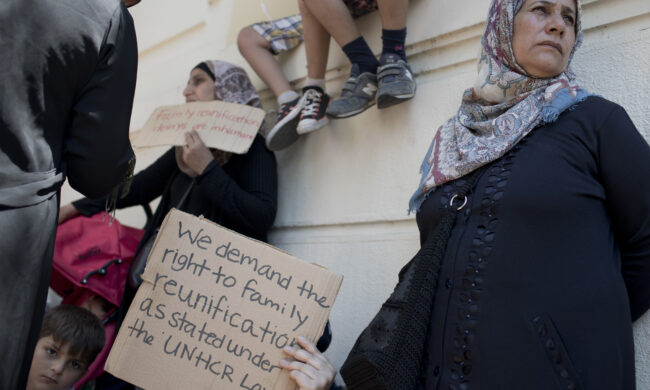 Family reunification
delays are inhumane
We demand the
right to family
reunification
as stated under
the UNHCR Law